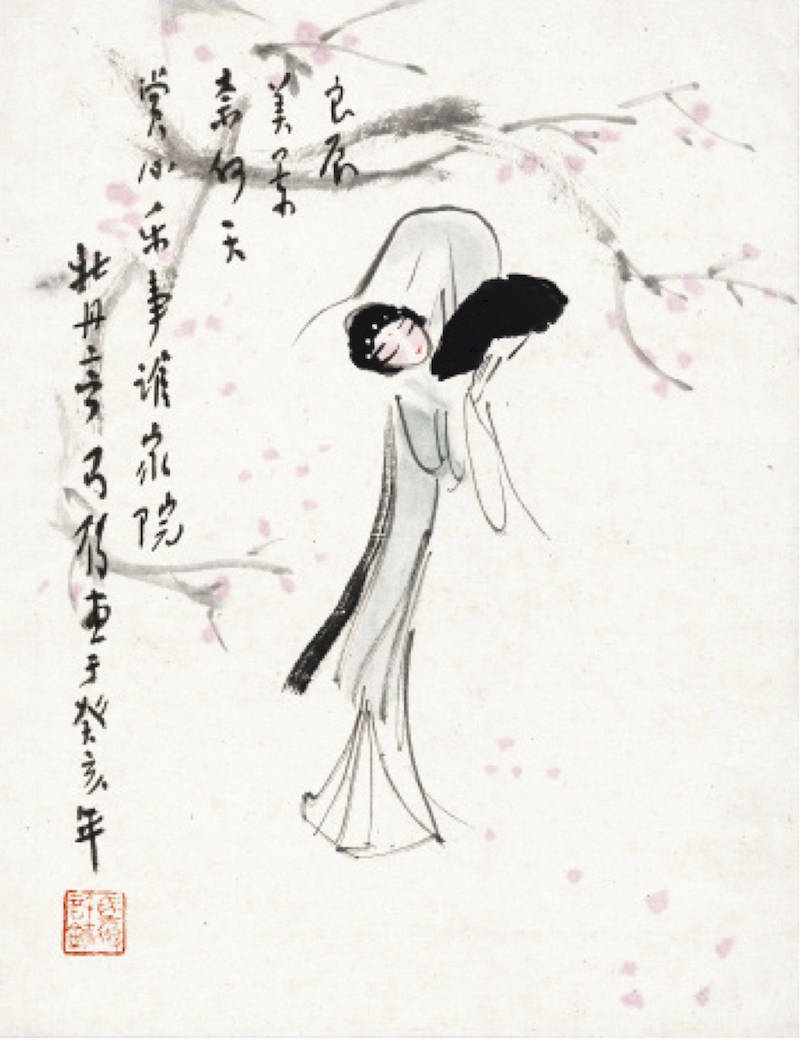 良辰
美景
奈何天
赏心乐事谁家院
牡丹亭马得画于癸亥年